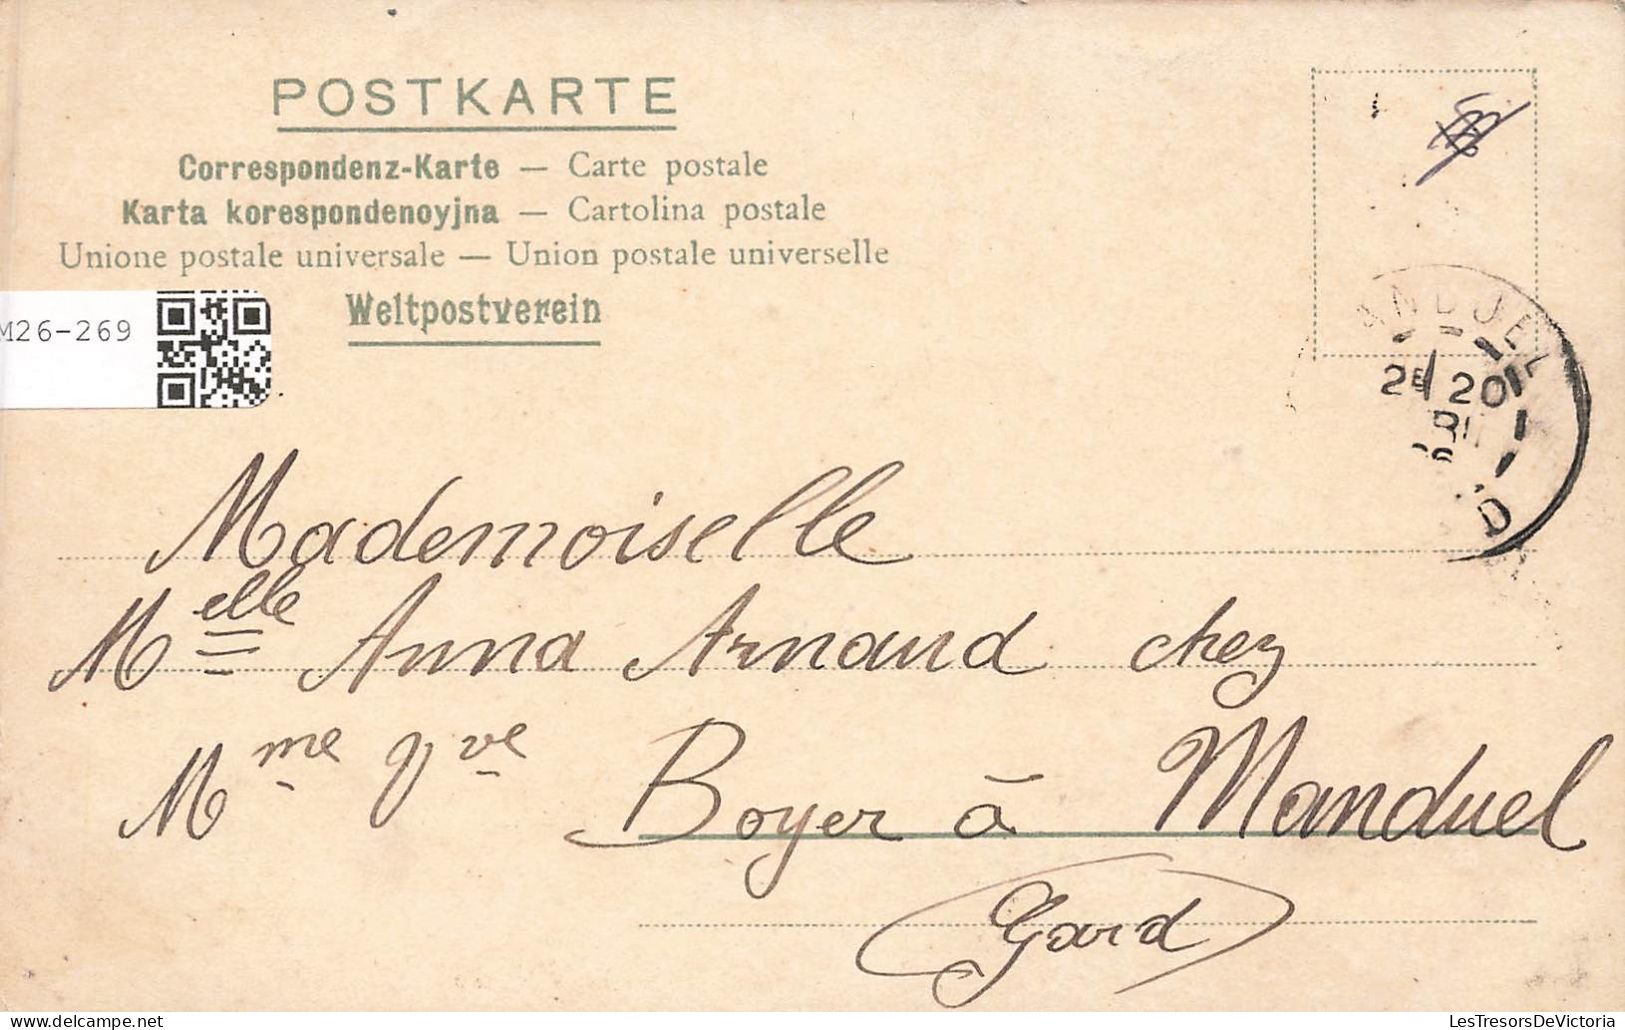 POSTKARTE
Correspondenz-Karte — Carte postale
Karta korespondenoyjna — Cartolina postale
Unione postale universale — Union postale universelle
Weltpostverein
M26-269
ANDUEL
2E 20
Mademoiselle
Melle Anna Arnaud chez
Mme Vve Boyer à Manduel
(Gard)
LesTresorsDeVictoria